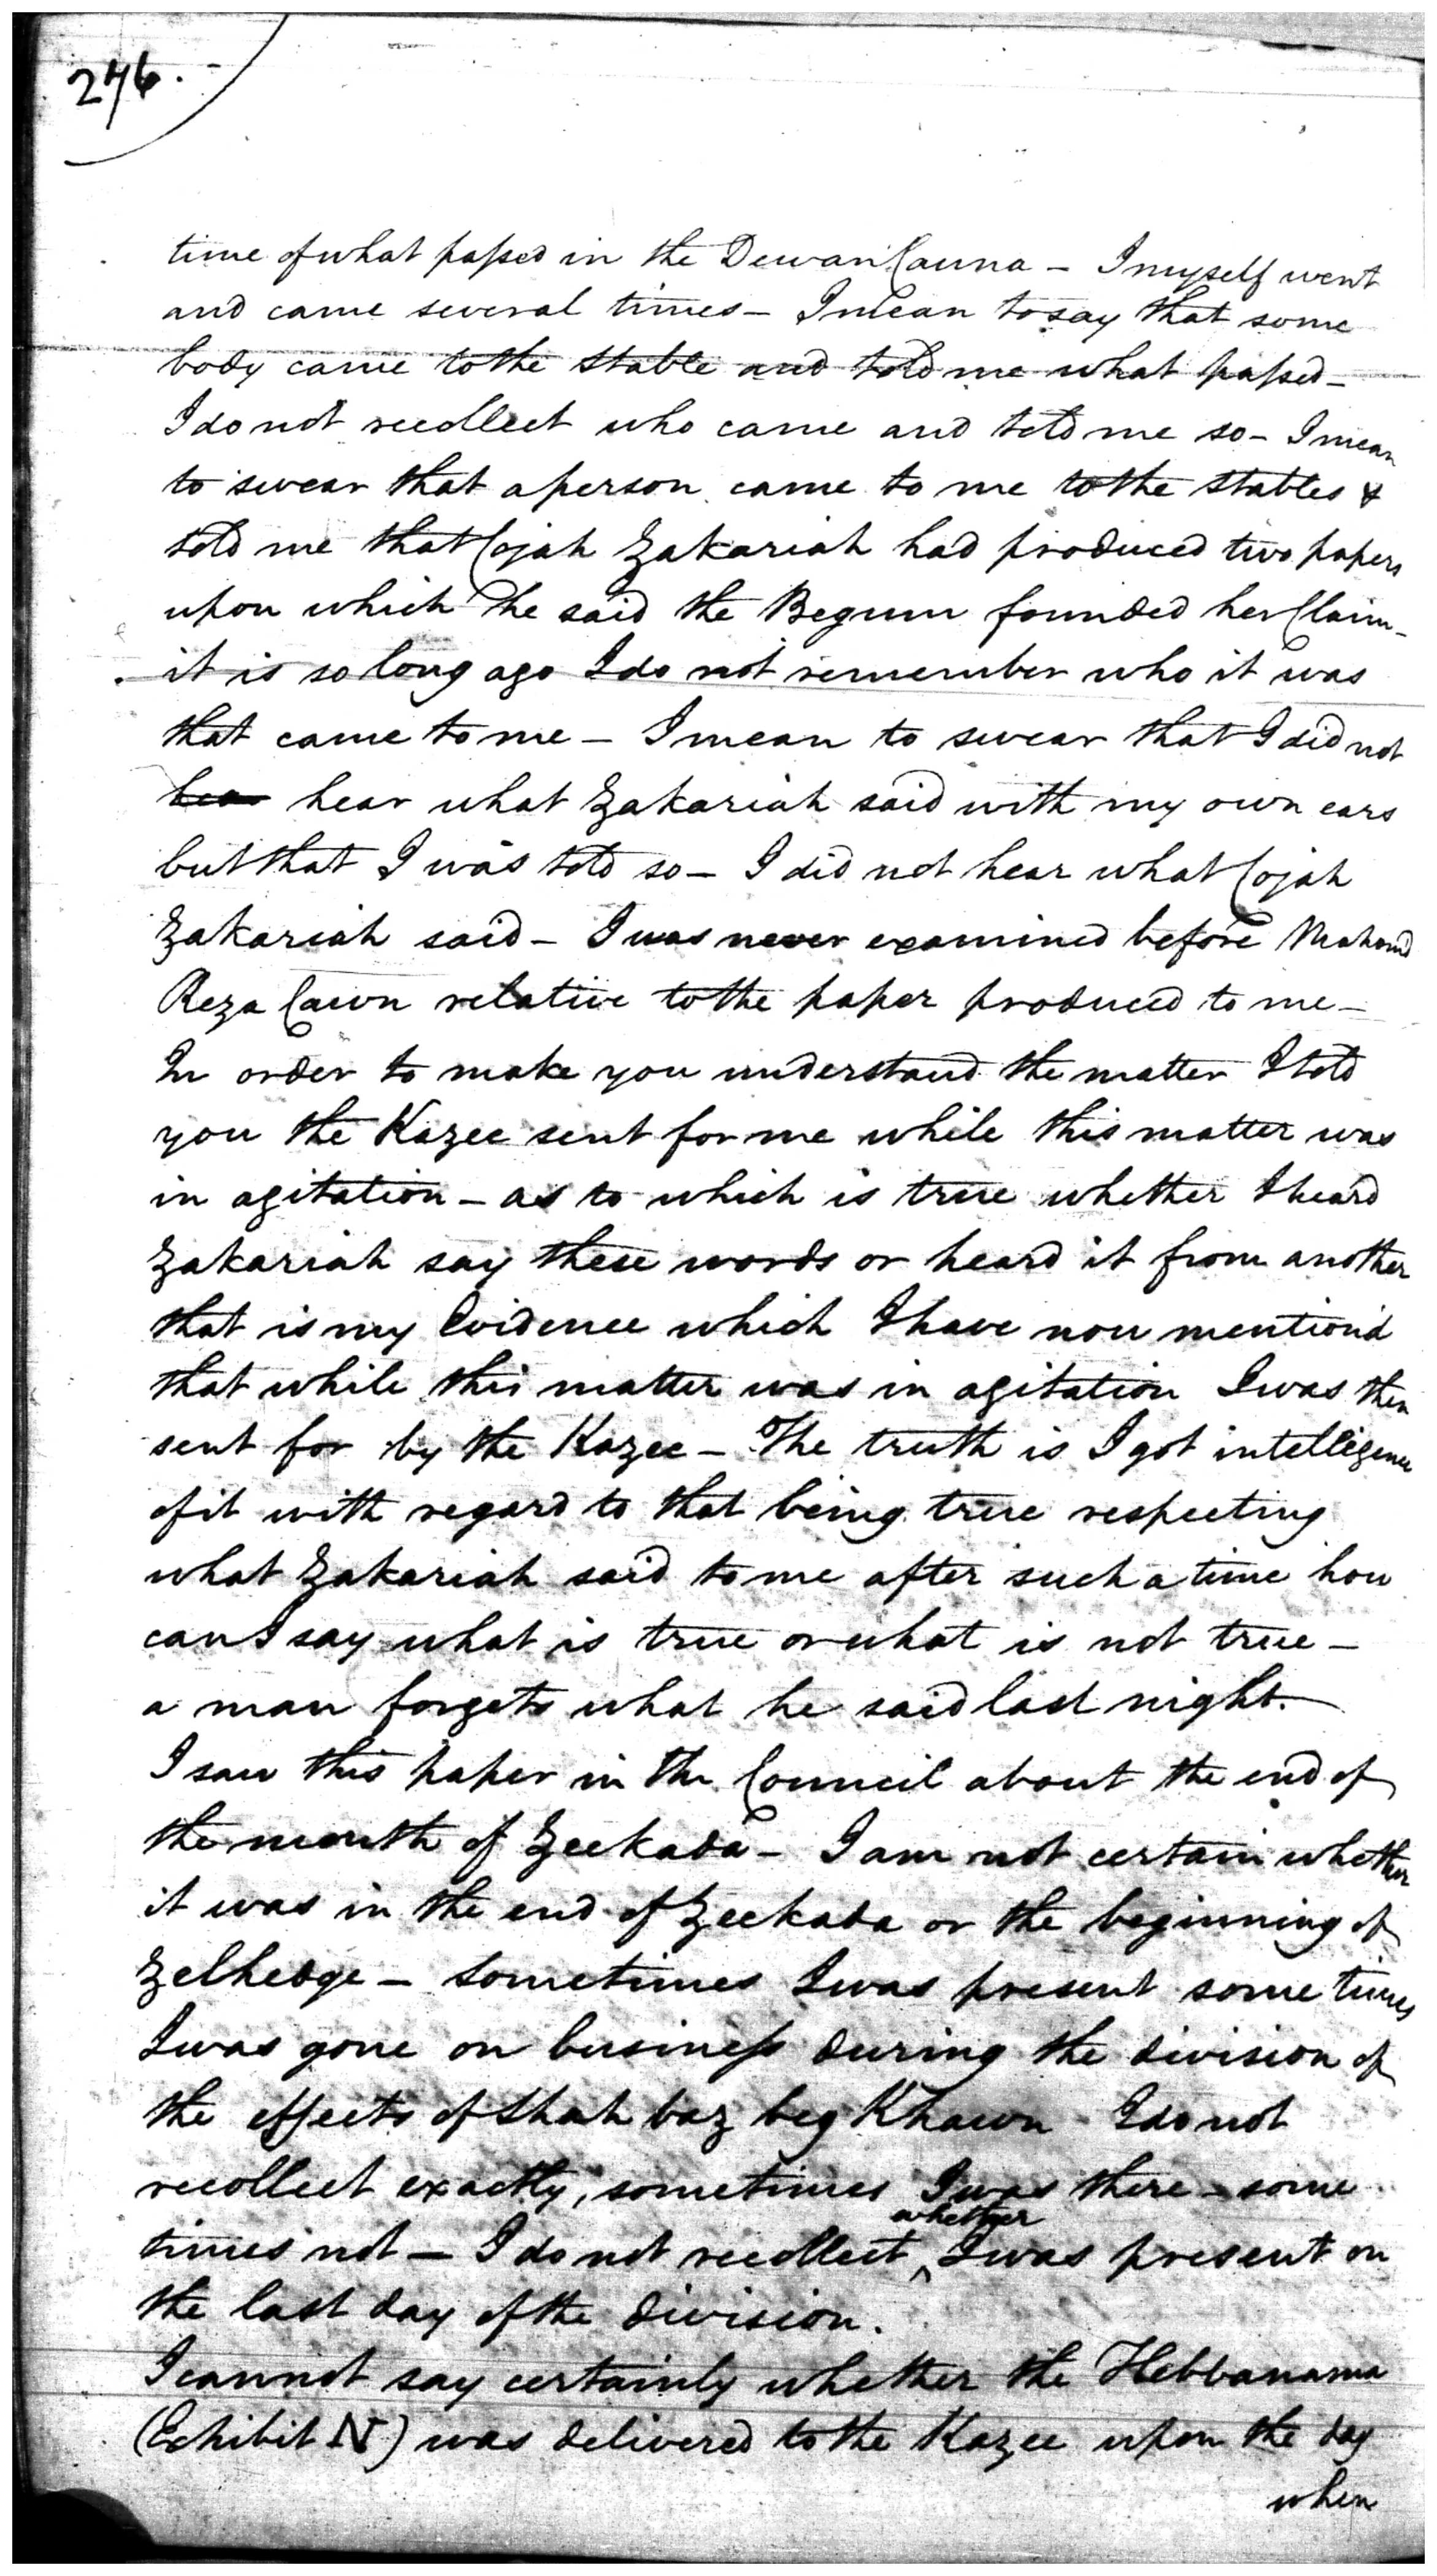 276.
time of what passed in the Dewan Cauna – I myself went
and came several times – I mean to say that some
body came to the stable and told me what passed –
I do not recollect who came and told me so – I mean
to swear that a person came to me to the stables &
told me that Cojah Zakariah had produced two papers
upon which he said the Begum founded her Claim –
it is so long ago I do not remember who it was
that came to me – I mean to swear that I did not
hear hear what Zakariah said with my own ears
but that I was told so – I did not hear what Cojah
Zakariah said – I was never examined before Mahomd
Reza Cawn relative to the paper produced to me –
In order to make you understand the matter I told
you the Kazee sent for me while this matter was
in agitation – as to which is true whether I heard
Zakariah say these words or heard it from another
that is my Evidence which I have now mention'd
that while this matter was in agitation I was then
sent for by the Kazee – The truth is I got intelligence
of it with regard to that being true respecting
what Zakariah said to me after such a time how
can I say what is true or what is not true –
a man forgets what he said last night. –
I saw this paper in the Council about the end of
the month of Zeekada – I am not certain whether
it was in the end of Zeekada or the beginning of
Zelhedge – sometimes I was present some times
I was gone on business during the division of
the effects of Shah baz beg Khawn I do not
recollect exactly, sometimes I was there – some
times not – I do not recollect whether I was present on
the last day of the division.
I cannot say certainly whether the Hebbanama
(Exhibit N) was delivered to the Kazee upon the day
when